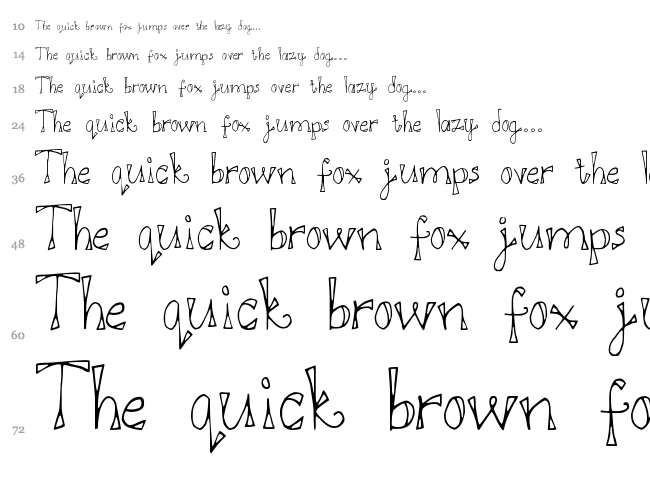 10 The quick brown fox jumps over the lazy dog....
14 The quick brown fox jumps over the lazy dog....
18 The quick brown fox jumps over the lazy dog....
24 The quick brown fox jumps over the lazy dog....
36 The quick brown fox jumps over the l
48 The quick brown fox jumps
60 The quick brown fox ju
72 The quick brown fo